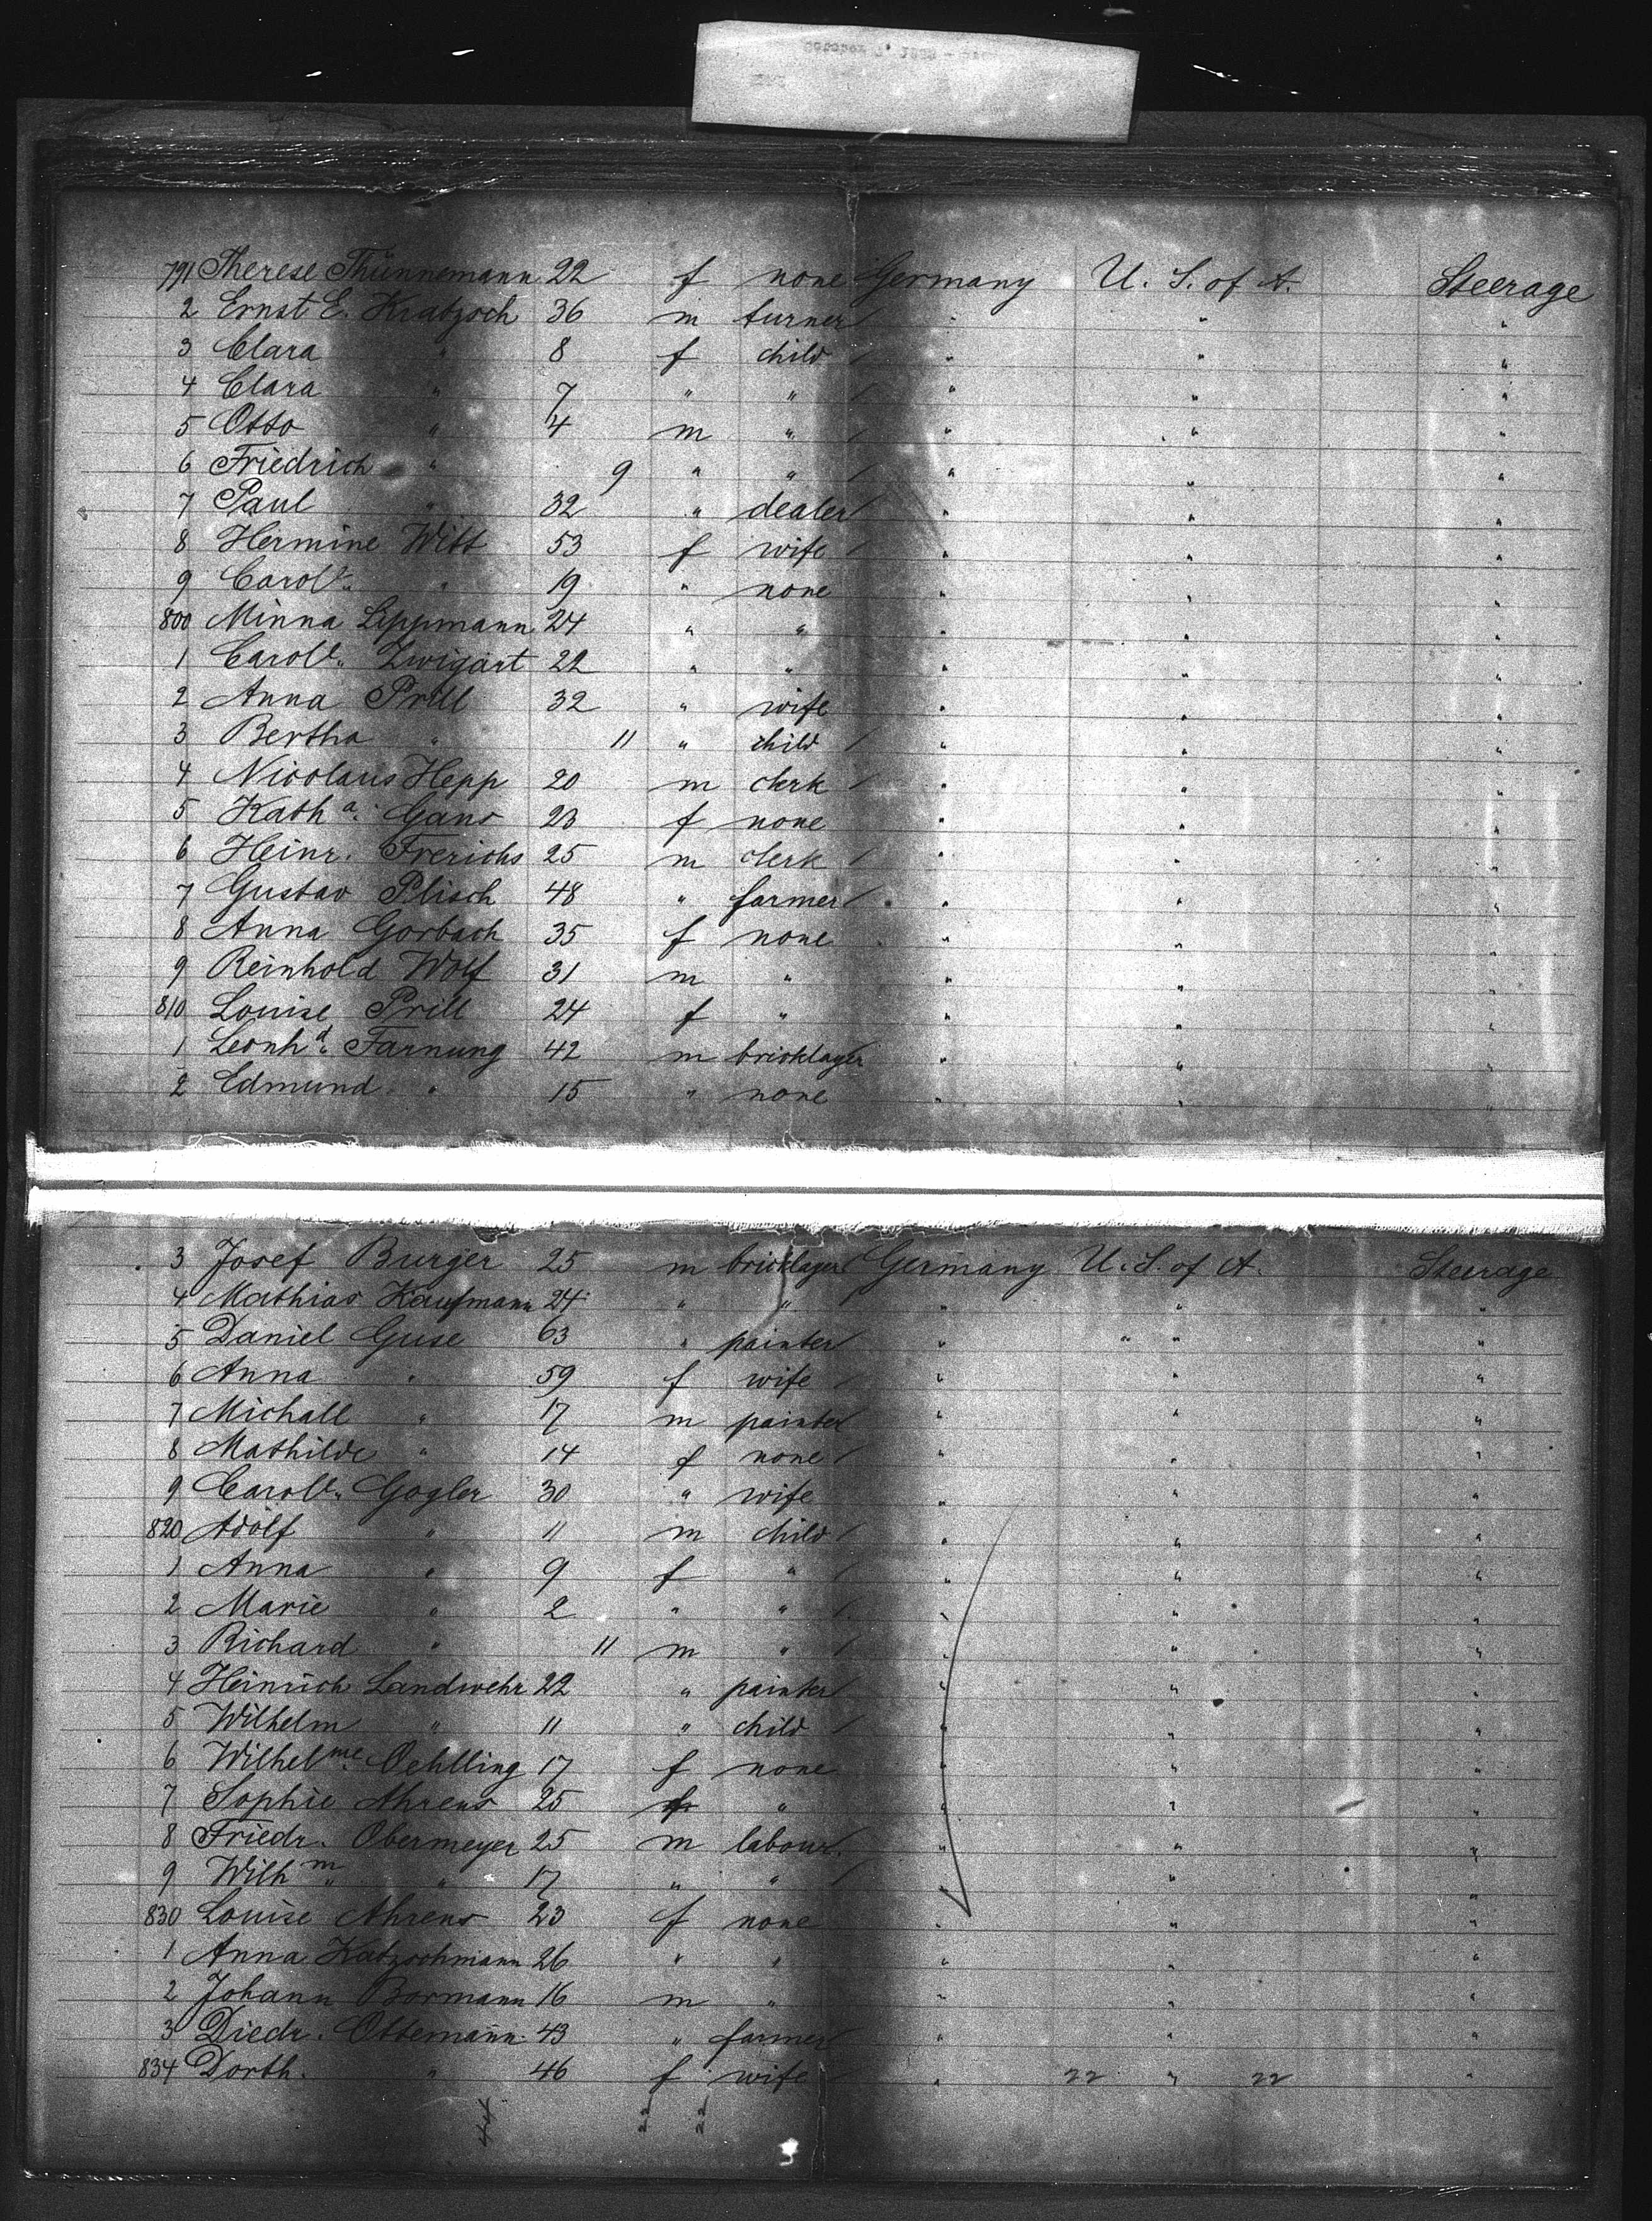 791 Therese Thünnemann 22 f none Germany U. S. of A. Steerage
2 Ernst E. Kratzsch 36 m turner " " "
3 Clara " 8 f child " " "
4 Clara " 7 " " " " "
5 Otto " 4 m " " " "
6 Friedrich " 9 " " " " "
7 Paul " 32 " dealer " " "
8 Hermine Witt 53 f wife " " "
9 Carol e. " 19 " none " " "
800 Minna Lippmann 24 " " " " "
1 Carol e. Zwigart 22 " " " " "
2 Anna Prill 32 " wife " " "
3 Bertha " 11 " child " " "
4 Nicolaus Hepp 20 m clerk " " "
5 Kath a. Gans 23 f none " " "
6 Heinr. Frerichs 25 m clerk " " "
7 Gustav Plisch 48 " farmer " " "
8 Anna Gorbach 35 f none " " "
9 Reinhold Wolf 31 m " " " "
810 Louise Prill 24 f " " " "
1 Leonh d. Farnung 42 m bricklayer " " "
2 Edmund " 15 " none " " "
3 Josef Burger 25 m bricklayer Germany U. S. of A. Steerage
4 Mathias Kaufmann 24 " " " " "
5 Daniel Guse 63 " painter " " "
6 Anna " 59 f wife " " "
7 Michall " 17 m painter " " "
8 Mathilde " 14 f none " " "
9 Carol e. Gogler 30 " wife " " "
820 Adolf " 11 m child " " "
1 Anna " 9 f " " " "
2 Marie " 2 " " " " "
3 Richard " 11 m " " " "
4 Heinrich Landwehr 22 " painter " " "
5 Wilhelm " 11 " child " " "
6 Wilhel me. Oehlling 17 f none " " "
7 Sophie Ahrens 25 f " " " "
8 Friedr. Obermeyer 25 m labour. " " "
9 Wilh m " 17 " " " " "
830 Louise Ahrens 23 f none " " "
1 Anna Katzschmann 26 " " " " "
2 Johann Bormann 16 m " " " "
3 Diedr. Ottemann 43 " farmer " " "
834 Dorth. " 46 f wife " 22 " 22 "
44 22 22